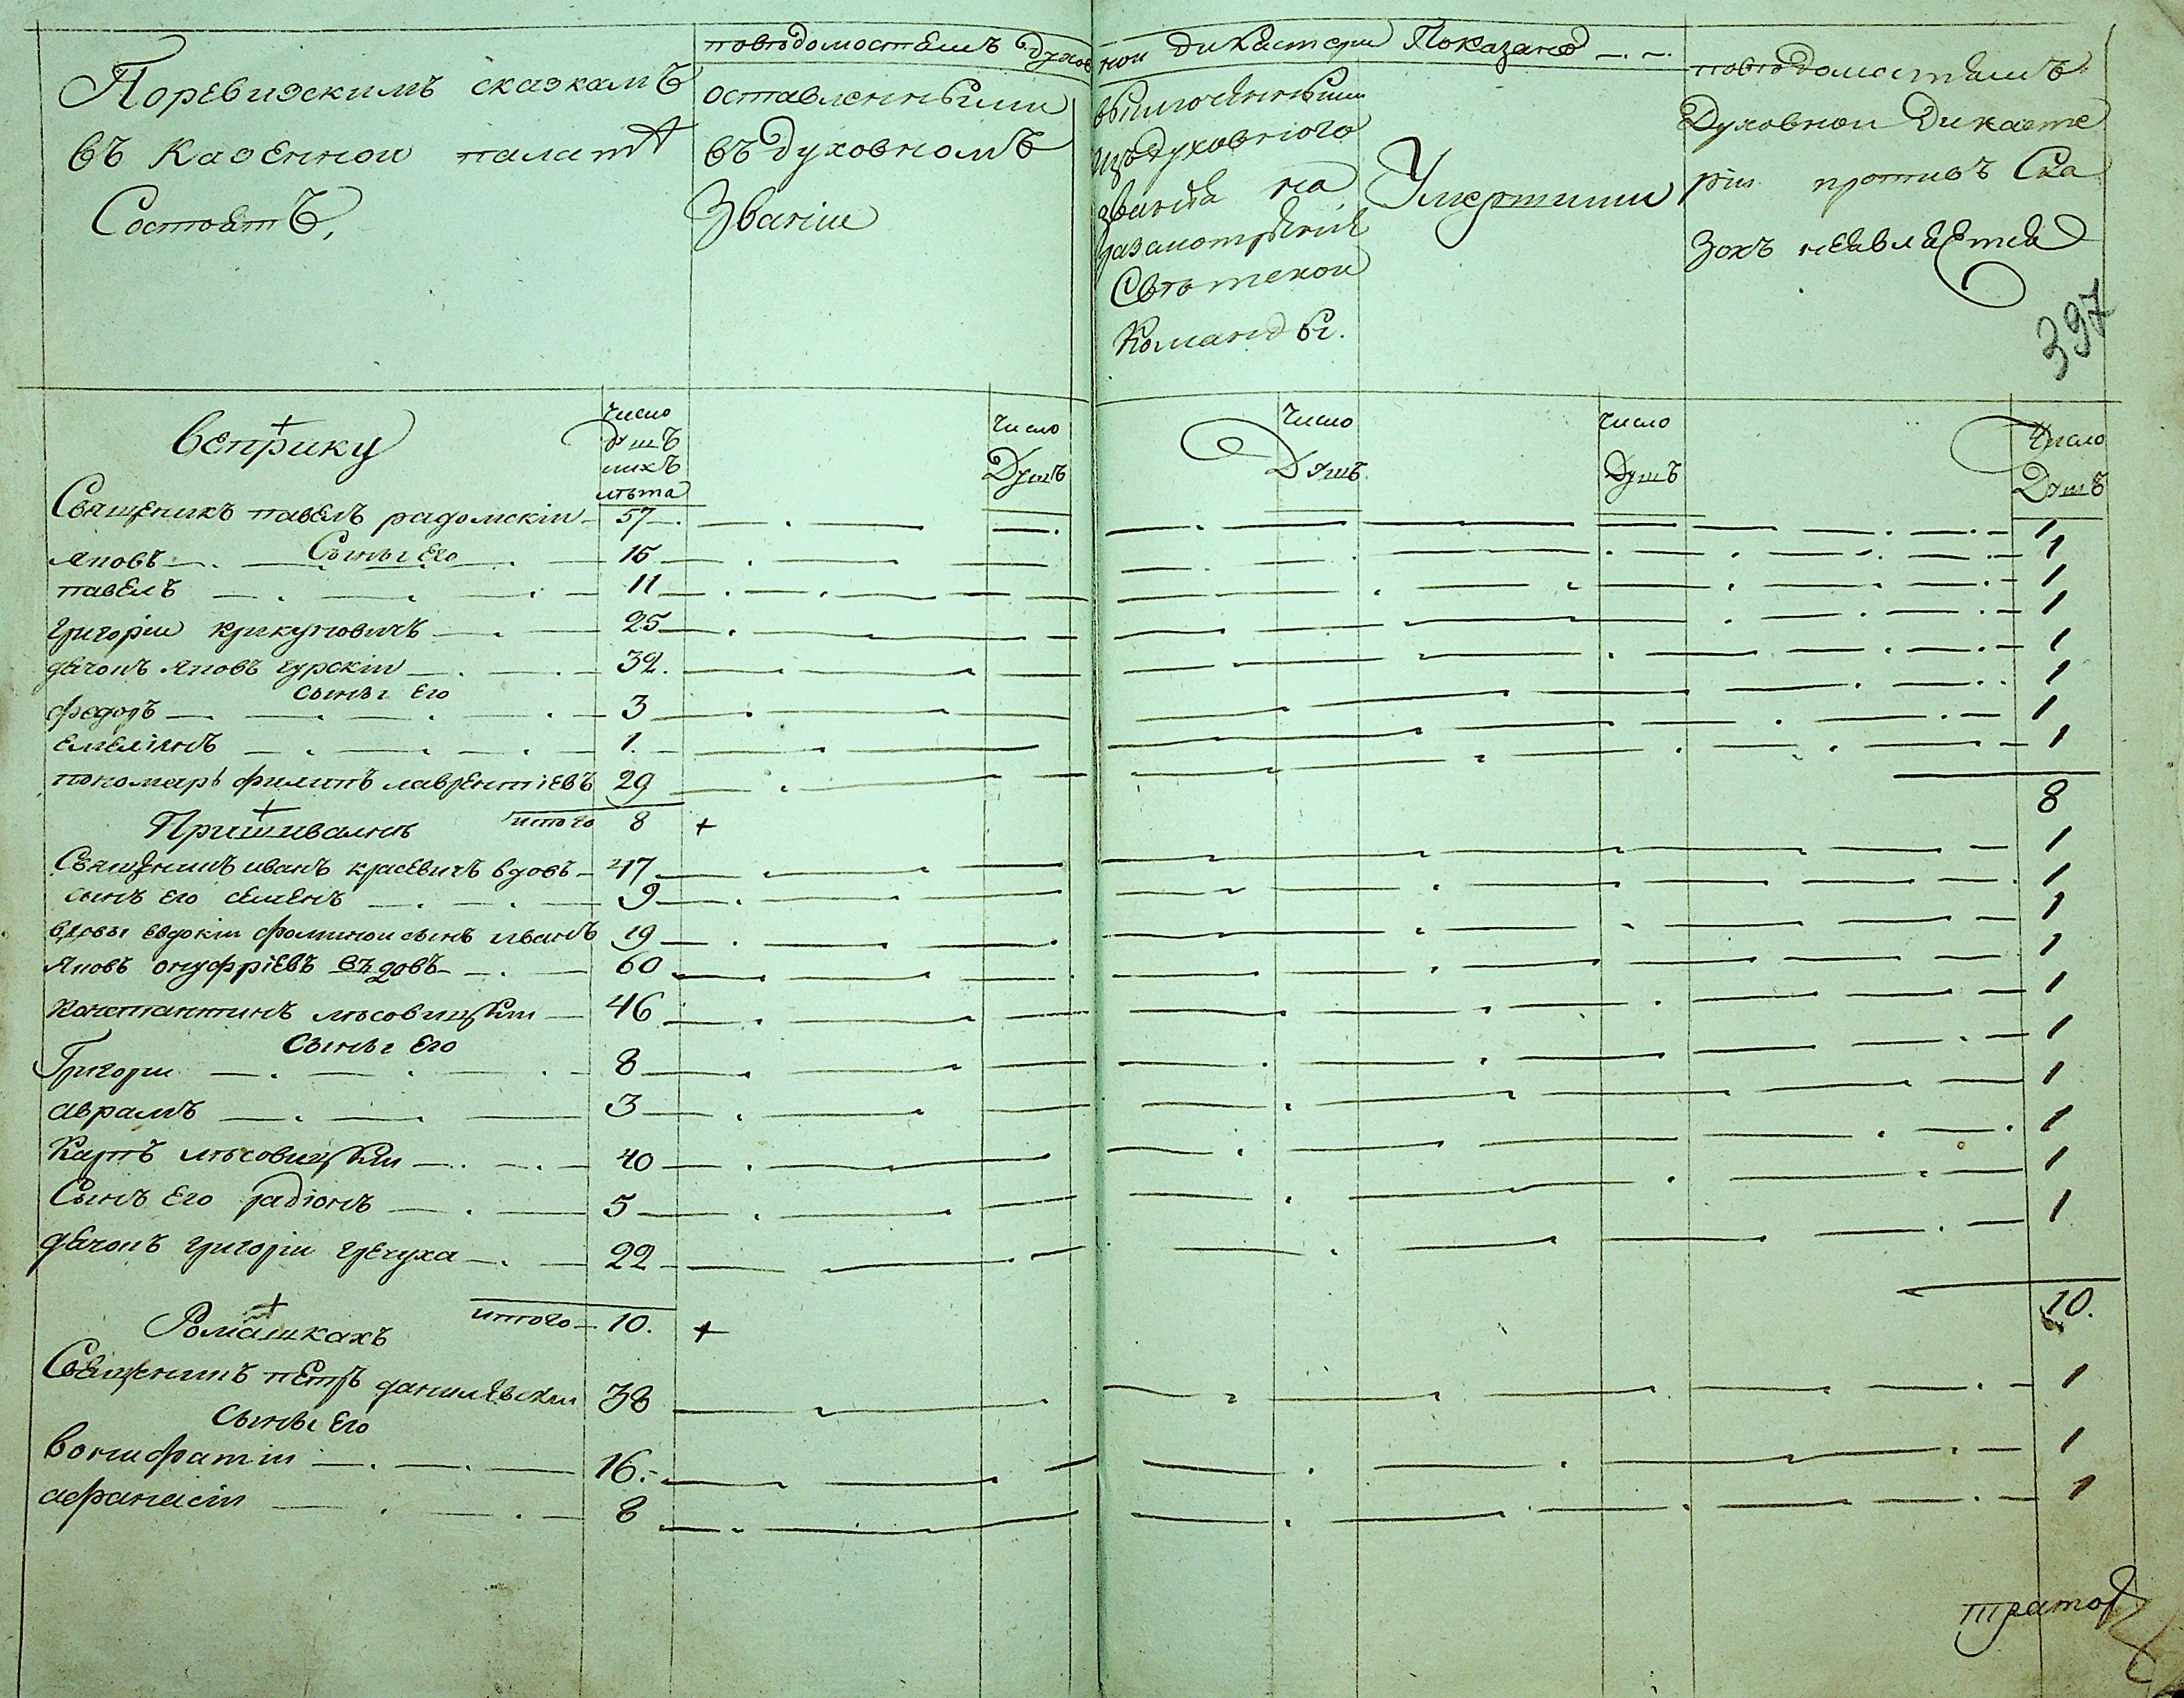 Поревизскимъ сказкамъ
въ Казенной палатѣ
Состоитъ,
поведомостямъ духов
ной дикастерии Показано
оставленными
въ духовномъ
Звании
выключенными
изъдуховного
звания на
разсмотрѣние
Свѣтской
Команды.
Умершими
поведомостямъ
Духовной Дикасте
рии противъ Ска
зокъ неявляется
397
Веприку
число
душъ
ихъ
лѣта
число
Душъ
число
Душъ
число
Душъ
число
Душъ
Священикъ павелъ радомский 57 1
Сыны Его
Яковъ 15 1
павелъ 11 1
григорий крикуновичъ 25 1
дячокъ Яковъ гурский 32. 1
сыны Его
федоръ 3 1
емелиянъ 1. 1
пономарь филипъ лаврентіевъ 29 1
итого 8 + 8
Пришивалнѣ
Священникъ иванъ красевичъ вдовъ 47 1
сынъ Его семенъ 9 1
вдовы евдокии фоминой сынъ иванъ 19 1
Яковъ онуфріевъ вдовъ 60 1
Константинъ лѣсовицкий 46 1
Сыны Его
Григорий 8 1
аврамъ 3 1
Карпъ лѣсовицкий 40 1
Сынъ Его радіонъ 5 1
дячокъ григорий гречуха 22 1
итого 10. + 10.
Ромашкахъ
Священникъ петръ данилевский 38 1
сыны Его
вонифатий 16. 1
афанасий 8 1